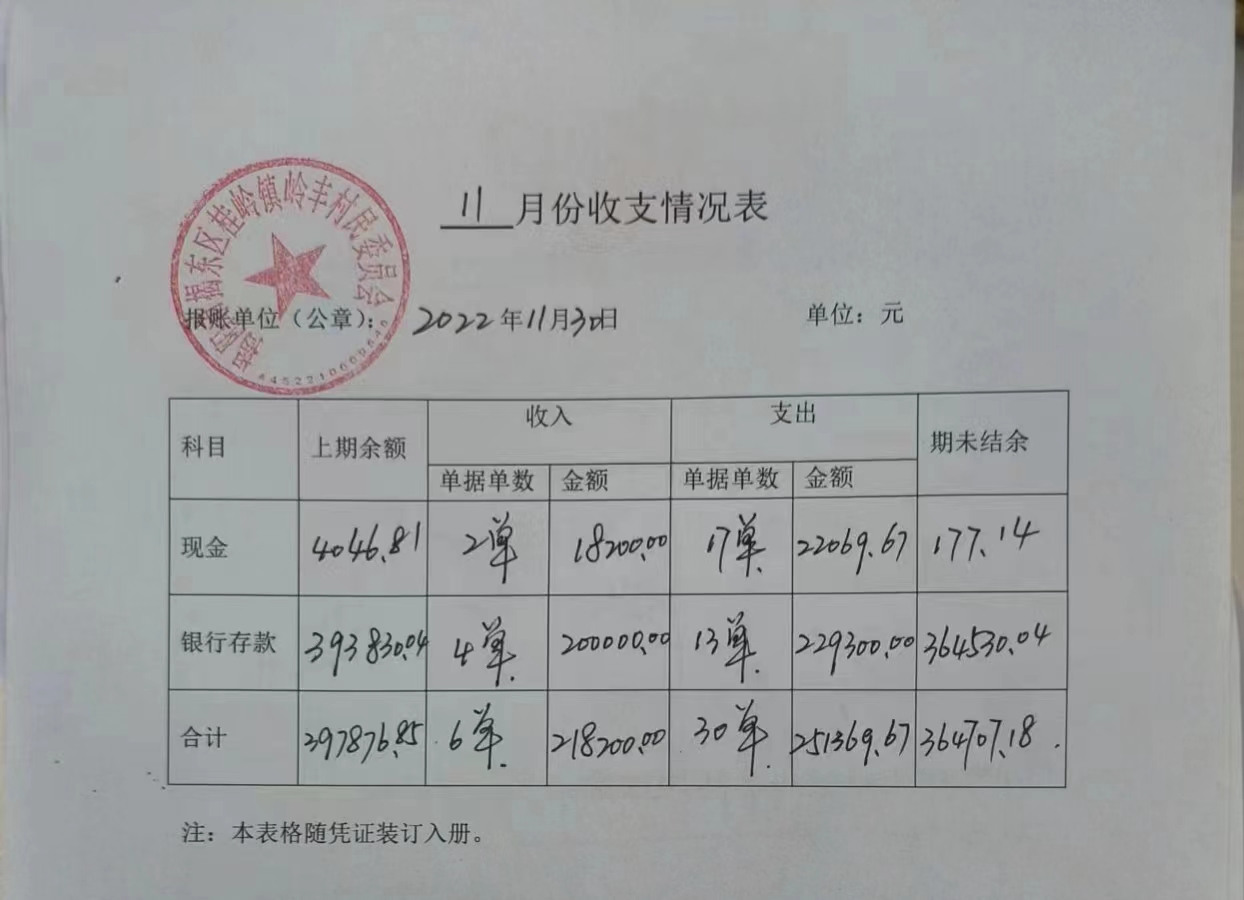 11月份收支情况表
揭阳市揭东区桂岭镇岭丰村民委员会
报账单位（公章）： 2022年11月30日 单位：元
科目 上期余额 收入 支出 期未结余
单据单数 金额 单据单数 金额
现金 4046.81 2单 18200.00 17单. 22069.67 177.14
银行存款 393830.04 4单. 200000.00 13单. 229300.00 364530.04
合计 397876.85 6单. 218200.00 30单. 251369.67 364707.18.
注：本表格随凭证装订入册。